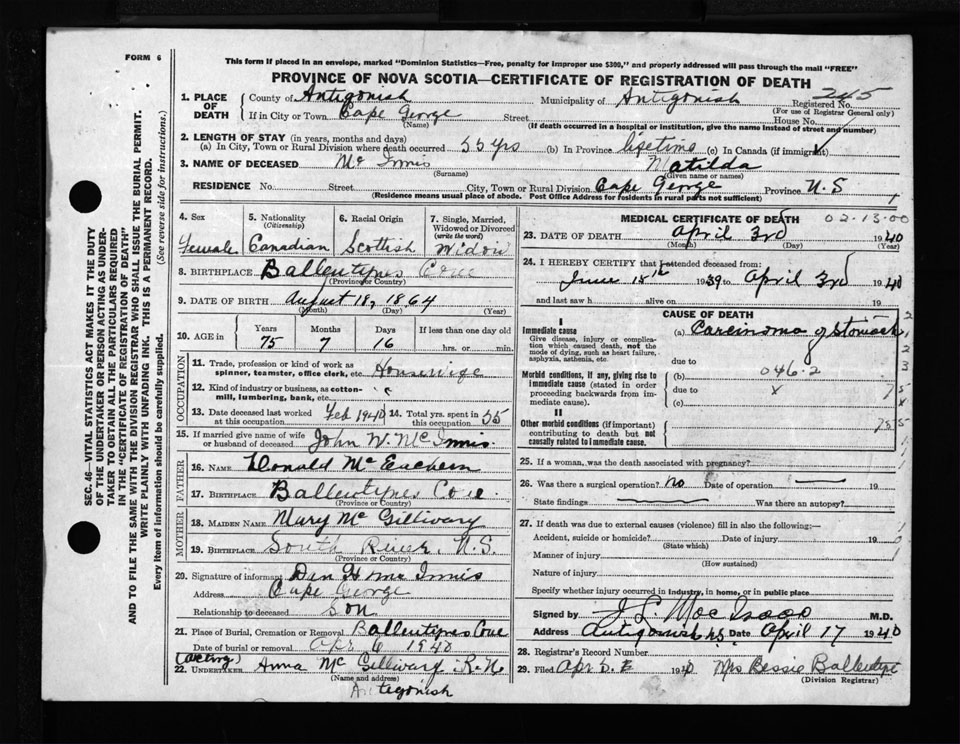 FORM 6
This form if placed in an envelope, marked "Dominion Statistics—Free, penalty for improper use $300," and properly addressed will pass through the mail "FREE"
PROVINCE OF NOVA SCOTIA—CERTIFICATE OF REGISTRATION OF DEATH
SEC. 46—VITAL STATISTICS ACT MAKES IT THE DUTY
OF THE UNDERTAKER OR PERSON ACTING AS UNDER-
TAKER TO OBTAIN ALL THE PARTICULARS REQUIRED
IN THE "CERTIFICATE OF REGISTRATION OF DEATH"
AND TO FILE THE SAME WITH THE DIVISION REGISTRAR WHO SHALL ISSUE THE BURIAL PERMIT.
WRITE PLAINLY WITH UNFADING INK. THIS IS A PERMANENT RECORD.
Every item of information should be carefully supplied. (See reverse side for instructions.)
1. PLACE OF DEATH
County of Antigonish Municipality of Antigonish Registered No. 245
(For use of Registrar General only)
If in City or Town Cape George Street House No.
(Name) (If death occurred in a hospital or institution, give the name instead of street and number)
2. LENGTH OF STAY (in years, months and days)
(a) In City, Town or Rural Division where death occurred 55 yrs (b) In Province lifetime (c) In Canada (if immigrant) ✓
3. NAME OF DECEASED Mc Innis Matilda
(Surname) (Given name or names)
RESIDENCE No. Street City, Town or Rural Division Cape George Province N.S
(Residence means usual place of abode. Post Office Address for residents in rural parts not sufficient)
4. Sex
Female
5. Nationality
(Citizenship)
Canadian
6. Racial Origin
Scottish
7. Single, Married, Widowed or Divorced
(write the word)
Widow
8. BIRTHPLACE Ballentynes Cove
(Province or Country)
9. DATE OF BIRTH August 18, 1864
(Month) (Day) (Year)
10. AGE in Years Months Days If less than one day old
75 7 16 hrs. or min.
OCCUPATION
11. Trade, profession or kind of work as
spinner, teamster, office clerk, etc. Housewife
12. Kind of industry or business, as cotton-
mill, lumbering, bank, etc. "
13. Date deceased last worked at this occupation Feb 1940 14. Total yrs. spent in this occupation 55
15. If married give name of wife
or husband of deceased John W. McInnis.
FATHER
16. NAME Donald McEachern
17. BIRTHPLACE Ballentynes Cove.
(Province or Country)
MOTHER
18. MAIDEN NAME Mary McGillivary
19. BIRTHPLACE South River, N.S.
(Province or Country)
20. Signature of informant Dan H McInnis
Address Cape George
Relationship to deceased Son
21. Place of Burial, Cremation or Removal Ballentynes Cove
Date of burial or removal Apr 6 1940
(Acting)
22. UNDERTAKER Anna McGillivary R.N
(Name and address)
Antigonish
MEDICAL CERTIFICATE OF DEATH 02-13-00
23. DATE OF DEATH April 3rd 1940
(Month) (Day) (Year)
24. I HEREBY CERTIFY that I attended deceased from:
June 15th 1939 to April 3rd 1940
and last saw h alive on 19
CAUSE OF DEATH
I
Immediate cause (a) Carcinoma of Stomach
Give disease, injury or complica-
tion which caused death, not the
mode of dying, such as heart failure,
asphyxia, asthenia, etc.
due to
Morbid conditions, if any, giving rise to
immediate cause (stated in order
proceeding backwards from im-
mediate cause).
(b) 046.2
due to x
(c)
II
Other morbid conditions (if important)
contributing to death but not
causally related to immediate cause.
25. If a woman, was the death associated with pregnancy?
26. Was there a surgical operation? no Date of operation 19
State findings Was there an autopsy?
27. If death was due to external causes (violence) fill in also the following:—
Accident, suicide or homicide? Date of injury 19
(State which)
Manner of injury
(How sustained)
Nature of injury
Specify whether injury occurred in industry, in home, or in public place
Signed by J L MacIsaac M.D.
Address Antigonish NS Date April 17 1940
28. Registrar's Record Number
29. Filed Apr 1940 Mrs Bessie Ballentyne
(Division Registrar)